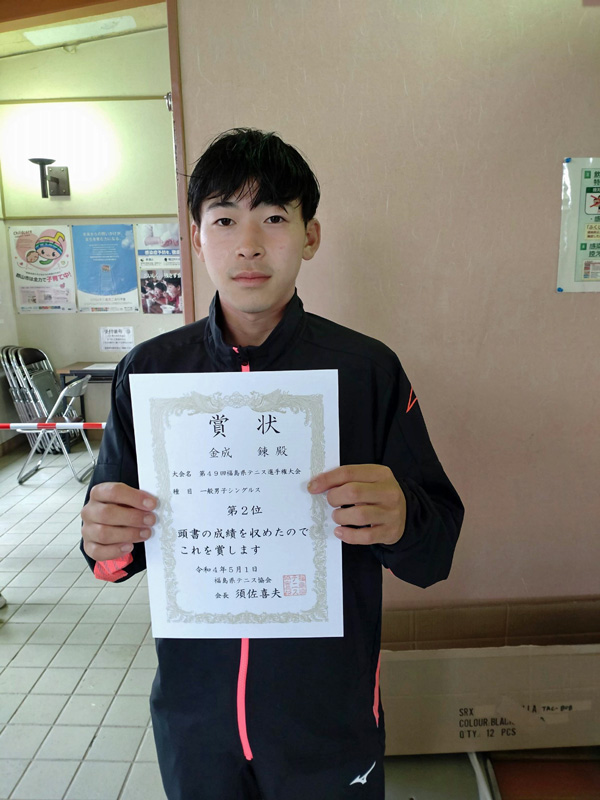 賞状
金成 錬 殿
大会名 第49回福島県テニス選手権大会
種目 一般男子シングルス
第2位
頭書の成績を収めたので
これを賞します
令和4年5月1日
福島県テニス協会
会長 須佐喜夫
SRX
COLOUR.BLAC
QTY. 12 PCS